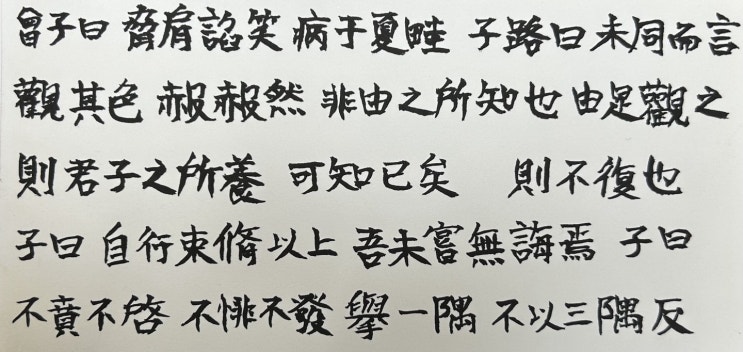 曾子曰 脅肩諂笑 病于夏畦 子路曰 未同而言
觀其色 赧赧然 非由之所知也 由是觀之
則君子之所養 可知已矣 則不復也
子曰 自行束脩以上 吾未嘗無誨焉 子曰
不賁不啓 不悱不發 舉一隅 不以三隅反